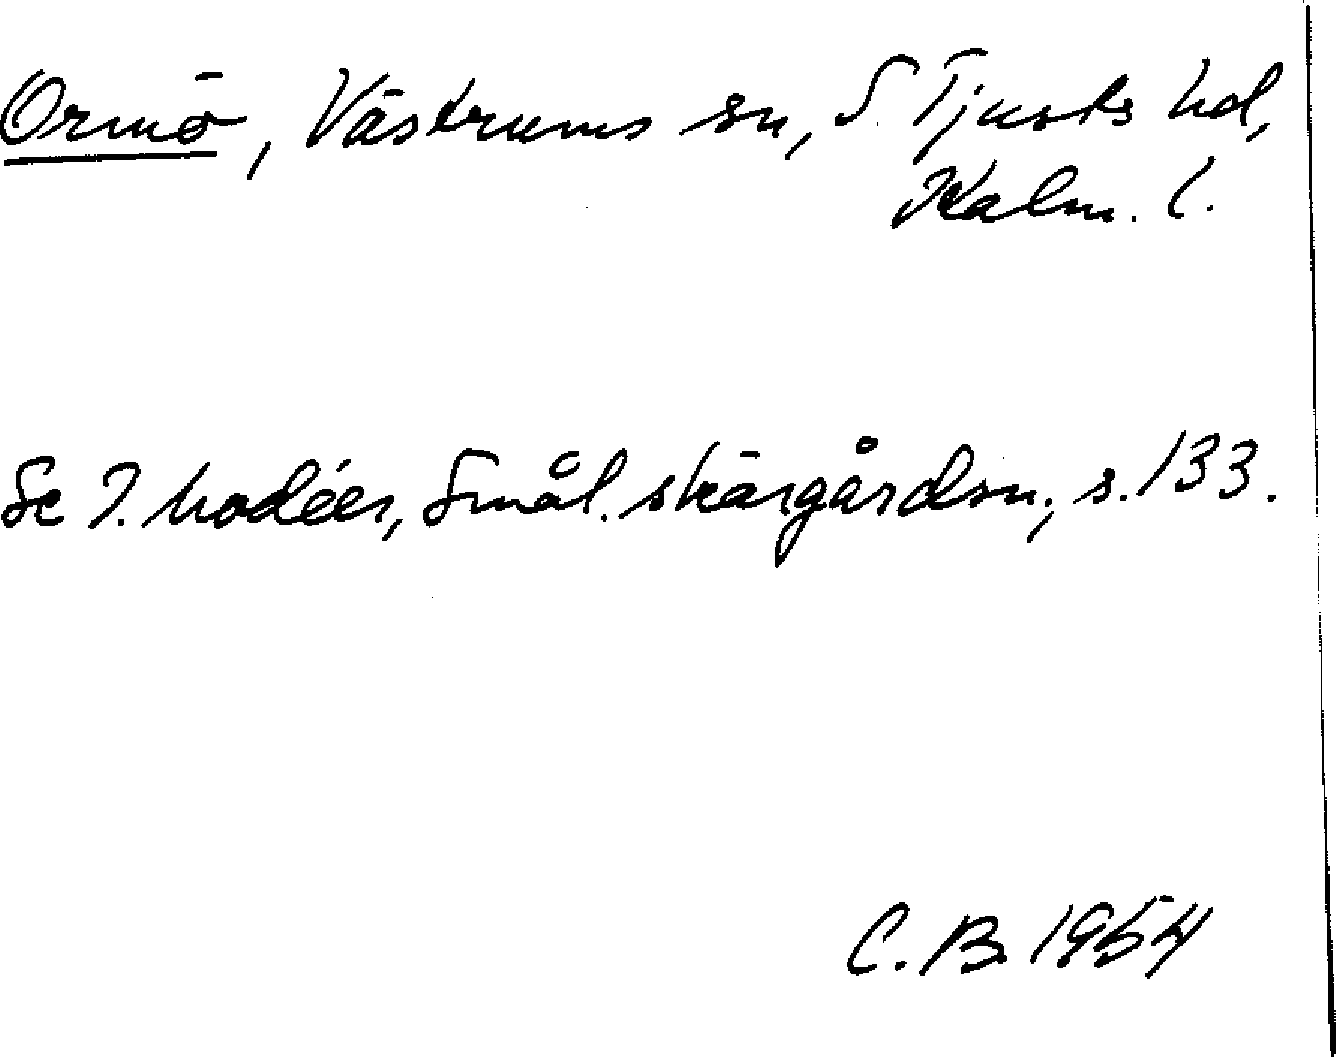 Ormö, Västrums sn, S. Tjusts hd,
Kalm. l.
Se I. Modéer, Smål. skärgårdsn., s. 133.
C. B. 1954